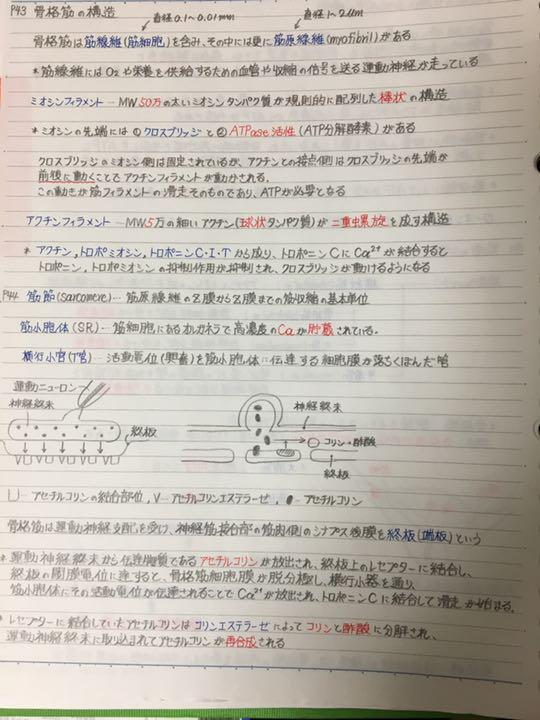 P43 骨格筋の構造
直径0.1~0.01mm
直径1~2μm
骨格筋は筋線維(筋細胞)を含み、その中には更に筋原線維(myofibril)がある
*筋線維にはO2や栄養を供給するための血管や収縮の信号を送る運動神経が走っている
ミオシンフィラメント…MW50万の太いミオシンタンパク質が規則的に配列した棒状の構造
*ミオシンの先端には①クロスブリッジと②ATPase活性(ATP分解酵素)がある
クロスブリッジのミオシン側は固定されているが、アクチンとの接点側はクロスブリッジの先端が
前後に動くことでアクチンフィラメントが動かされる.
この動きが筋フィラメントの滑走そのものであり、ATPが必要となる
アクチンフィラメント…MW5万の細いアクチン(球状タンパク質)が二重螺旋を成す構造
*アクチン,トロポミオシン,トロポニンC・I・Tから成り、トロポニンCにCa2+が結合すると
トロポニン,トロポミオシンの抑制作用が抑制され、クロスブリッジが動けるようになる
P44 筋節(sarcomere)…筋原線維のZ膜からZ膜までの筋収縮の基本単位
筋小胞体(SR)…筋細胞にあるオルガネラで高濃度のCaが貯蔵されている。
横行小管(T管)…活動電位(興奮)を筋小胞体に伝達する細胞膜が落ちくぼんだ管
運動ニューロン
神経終末
終板
神経終末
コリン+酢酸
終板
凵-アセチルコリンの結合部位, V-アセチルコリンエステラーゼ, ●-アセチルコリン
骨格筋は運動神経支配を受け、神経筋接合部の筋肉側のシナプス後膜を終板(端板)という
*運動神経終末から伝達物質であるアセチルコリンが放出され、終板上のレセプターに結合し、
終板の閾膜電位に達すると、骨格筋細胞膜が脱分極し、横行小器を通り、
筋小胞体にその活動電位が伝達されることでCa2+が放出され、トロポニンCに結合して滑走が始まる.
*レセプターに結合していたアセチルコリンはコリンエステラーゼによってコリンと酢酸に分解され、
運動神経終末に取り込まれてアセチルコリンが再合成される